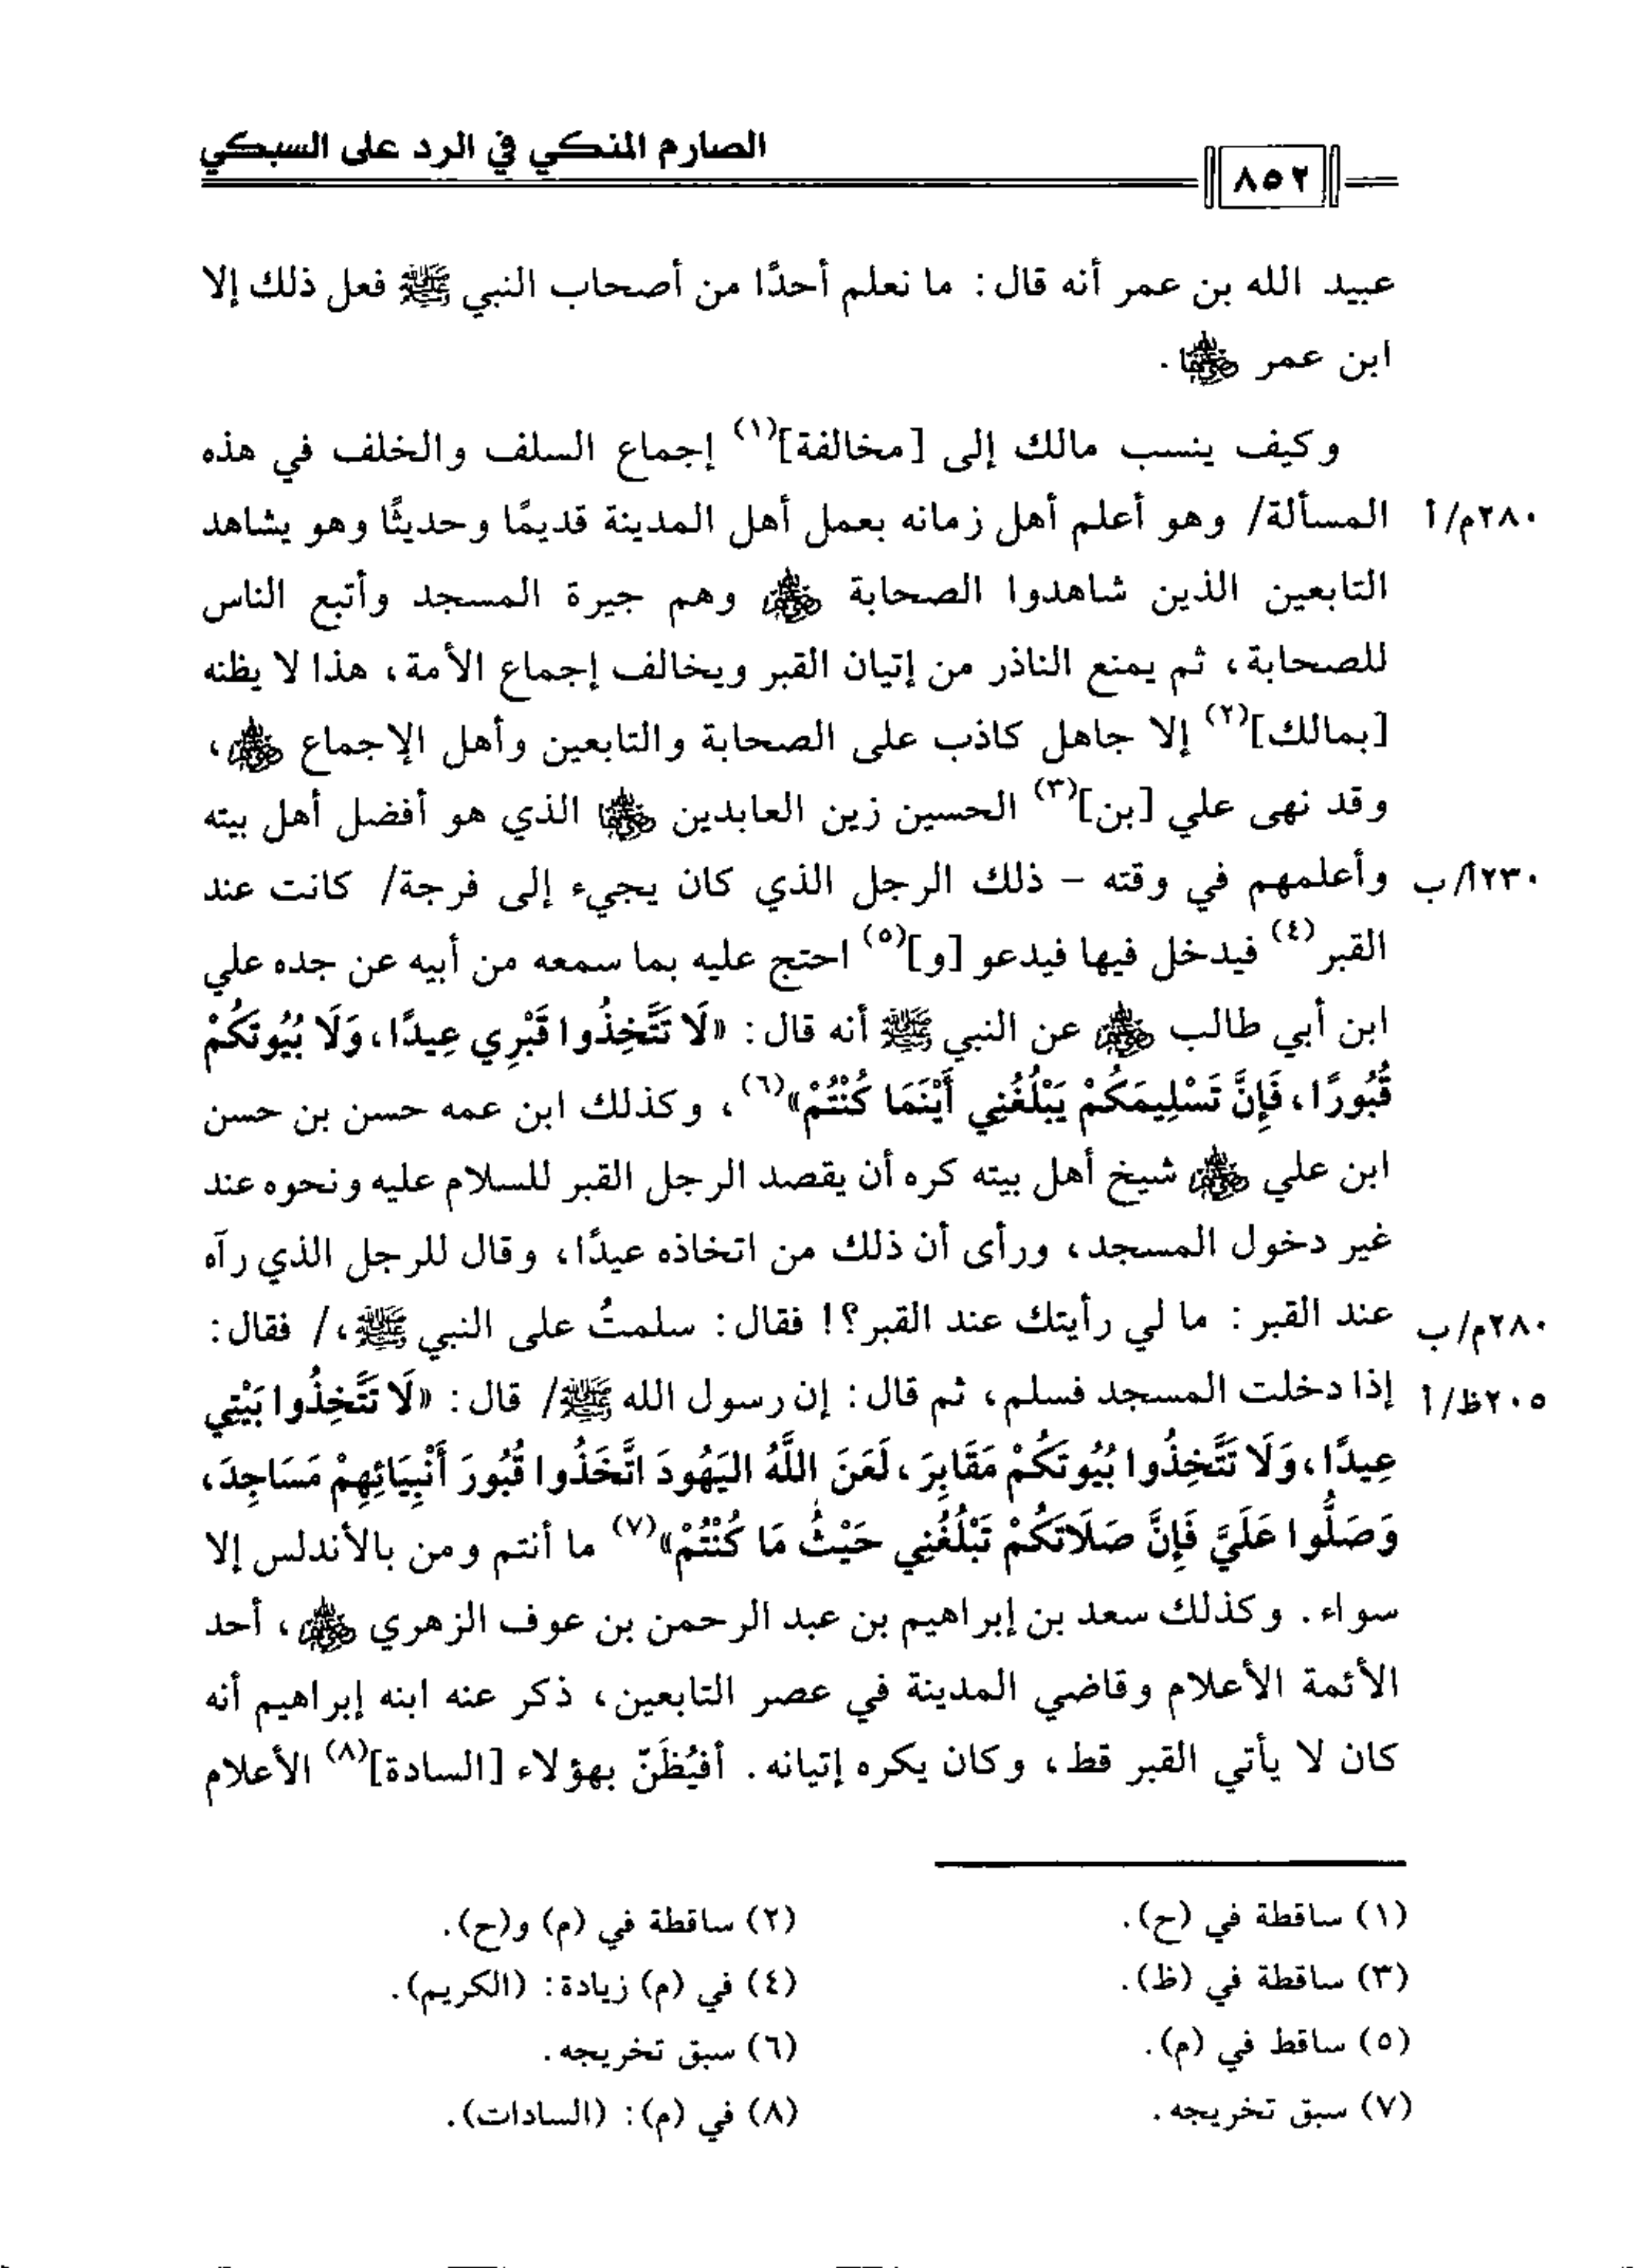 الصارم المنكي في الرد على السبكي
٨٥٢
عبيد الله بن عمر أنه قال: ما نعلم أحدًا من أصحاب النبي ﷺ فعل ذلك إلا
ابن عمر رضي الله عنهما.
وكيف ينسب مالك إلى [مخالفة](١) إجماع السلف والخلف في هذه
المسألة/ وهو أعلم أهل زمانه بعمل أهل المدينة قديمًا وحديثًا وهو يشاهد ٢٨٠م/أ
التابعين الذين شاهدوا الصحابة رضي الله عنهم وهم جيرة المسجد وأتبع الناس
للصحابة، ثم يمنع الناذر من إتيان القبر ويخالف إجماع الأمة، هذا لا يظنه
[بمالك](٢) إلا جاهل كاذب على الصحابة والتابعين وأهل الإجماع رضي الله عنهم،
وقد نهى علي [بن](٣) الحسين زين العابدين رضي الله عنهما الذي هو أفضل أهل بيته
وأعلمهم في وقته - ذلك الرجل الذي كان يجيء إلى فرجة/ كانت عند ٢٣٠أ/ب
القبر(٤) فيدخل فيها فيدعو [و](٥) احتج عليه بما سمعه من أبيه عن جده علي
ابن أبي طالب رضي الله عنه عن النبي ﷺ أنه قال: «لَا تَتَّخِذُوا قَبْرِي عِيدًا، وَلَا بُيُوتَكُمْ
قُبُورًا، فَإِنَّ تَسْلِيمَكُمْ يَبْلُغُنِي أَيْنَمَا كُنْتُمْ»(٦)، وكذلك ابن عمه حسن بن حسن
ابن علي رضي الله عنهم شيخ أهل بيته كره أن يقصد الرجل القبر للسلام عليه ونحوه عند
غير دخول المسجد، ورأى أن ذلك من اتخاذه عيدًا، وقال للرجل الذي رآه
عند القبر: ما لي رأيتك عند القبر؟! فقال: سلمتُ على النبي ﷺ،/ فقال: ٢٨٠م/ب
إذا دخلت المسجد فسلم، ثم قال: إن رسول الله ﷺ/ قال: «لَا تَتَّخِذُوا بَيْتِي ٢٠٥ظ/أ
عِيدًا، وَلَا تَتَّخِذُوا بُيُوتَكُمْ مَقَابِرَ، لَعَنَ اللَّهُ اليَهُودَ اتَّخَذُوا قُبُورَ أَنْبِيَائِهِمْ مَسَاجِدَ،
وَصَلُّوا عَلَيَّ فَإِنَّ صَلَاتَكُمْ تَبْلُغُنِي حَيْثُ مَا كُنْتُمْ»(٧) ما أنتم ومن بالأندلس إلا
سواء. وكذلك سعد بن إبراهيم بن عبد الرحمن بن عوف الزهري رضي الله عنه، أحد
الأئمة الأعلام وقاضي المدينة في عصر التابعين، ذكر عنه ابنه إبراهيم أنه
كان لا يأتي القبر قط، وكان يكره إتيانه. أفيُظَنّ بهؤلاء [السادة](٨) الأعلام
(١) ساقطة في (ح). (٢) ساقطة في (م) و(ح).
(٣) ساقطة في (ظ). (٤) في (م) زيادة: (الكريم).
(٥) ساقط في (م). (٦) سبق تخريجه.
(٧) سبق تخريجه. (٨) في (م): (السادات).